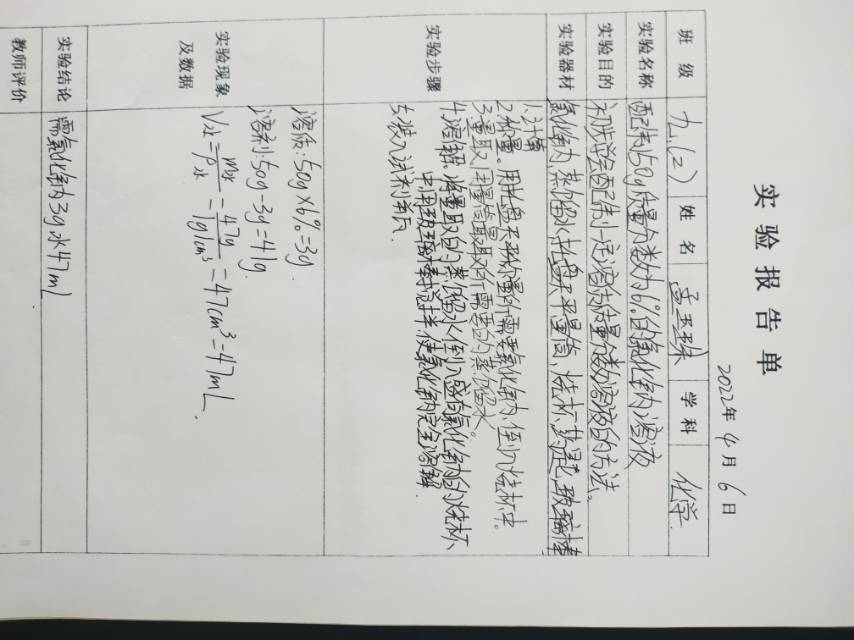 实验报告单
2022年4月6日
班级 九.(2) 姓名 孟珠 学科 化学
实验名称 配制50g质量分数为6%的氯化钠溶液
实验目的 初步学会配制一定溶质质量分数溶液的方法.
实验器材 氯化钠,蒸馏水,托盘天平,量筒,烧杯,药匙,玻璃棒
实验步骤
1.计算
2.称量。用托盘天平称量所需要氯化钠,倒入烧杯中。
3.量取.用量筒量取所需要的蒸馏水。
4.溶解。将量取的蒸馏水倒入盛有氯化钠的烧杯
中用玻璃棒搅拌,使氯化钠完全溶解.
5.装入试剂瓶.
实验现象
及数据
溶质:50g×6%=3g.
溶剂:50g-3g=41g.
V水=m水/ρ水=47g/1g/cm³=47cm³=47mL.
实验结论 需氯化钠3g水47mL
教师评价